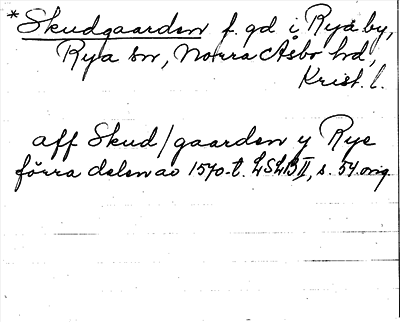 * Skudgaarden f. gd i Rya by,
Rya sn, Norra Åsbo hd,
Krist. l.
aff Skud/gaarden y Rye
förra delen av 1570-t. LSLB II, s. 54. orig.